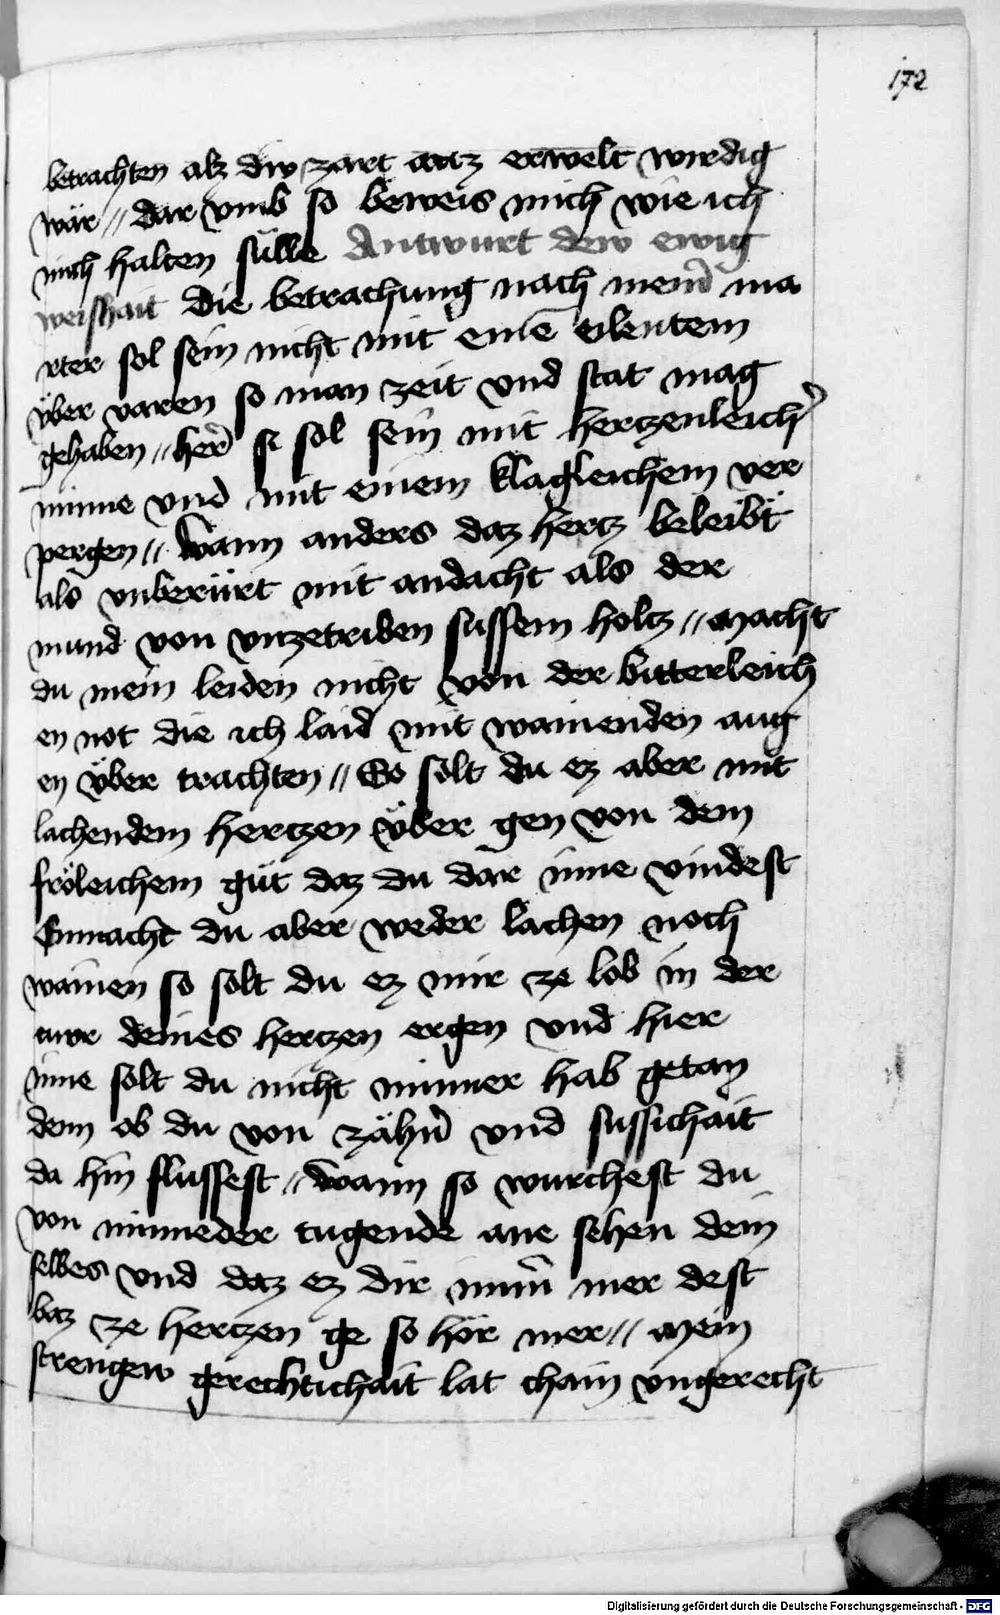 172
betrachten alz diw zart artz erwelt wirdig
wär // dar vmb so beweis mich wie ich
mich halten sülle Antwurt dew ewig
weishait Die betrachung nach mein̄ ma
rter sol sein nicht mit einē eilentem
über varen so man zeit vnd stat mag
gehaben // her̄ si sol sein mit hertzenleich̄
minne vnd mit einem klagleichem ver
pergen // wann anders daz hertz beleibt
als vnberürt mit andacht als der
mund von vnzetriben süssem holtz // macht
du mein leiden nicht von der bitterleich
en not die ich laid mit wainenden aug
en über trachten // So solt du ez aber mit
lachendem hertzen über gen von dem
fröleichem güt daz du dar inne vindest
Enmacht du aber weder lachen noch
wainen so solt du ez mir ze lob in der
deines hertzen ergen vnd hier
inne solt du nicht minner hab getan
denn ob du von zähn̄ vnd süssichait
da hin flussest // wann so wurchest du
von minneder tugende ane sehen dein
selbes vnd daz ez dir imm̄ mer dest
baz ze hertzen ge so hör mer // mein
strengew gerechtichait lat chain vngerecht
Digitalisierung gefördert durch die Deutsche Forschungsgemeinschaft - DFG